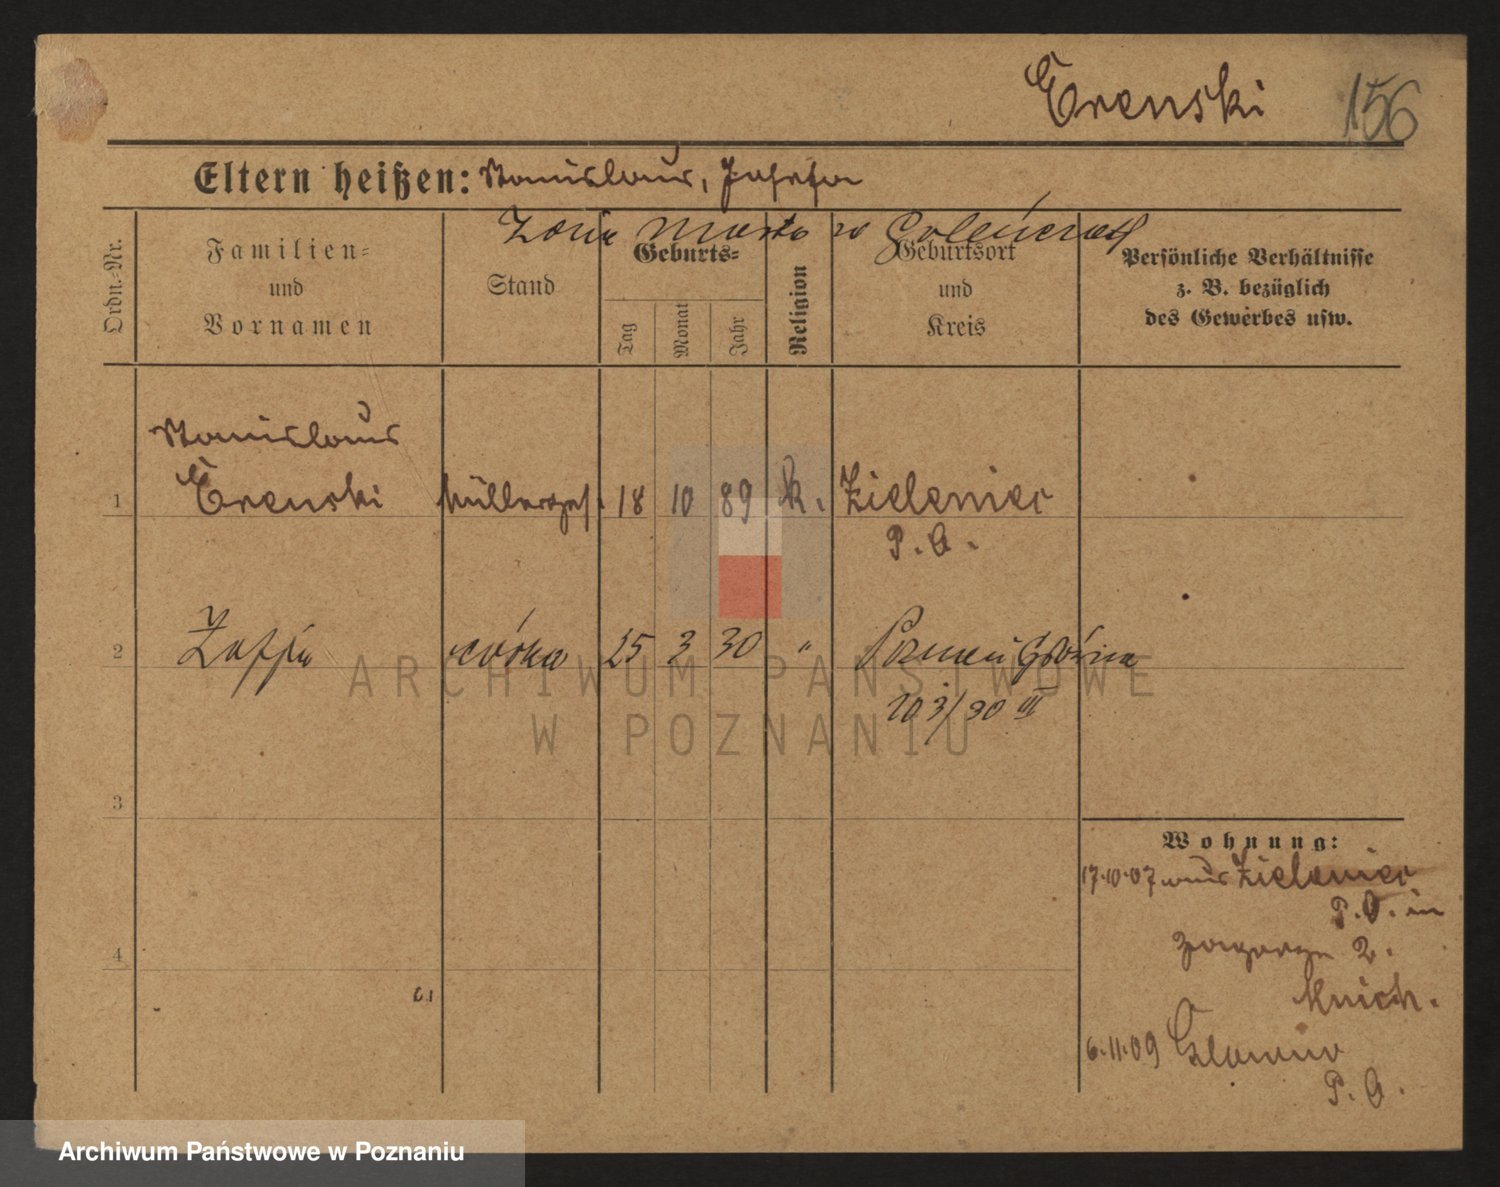 Erenski 156
Eltern heißen: Stanislaus, Josefa
Żona Marta w
Ordn.-Nr.
Familien-
und
Vornamen
Stand
Geburts-
Tag
Monat
Jahr
Religion
Geburtsort
und
Kreis
Persönliche Verhältnisse
z. B. bezüglich
des Gewerbes usw.
Stanislaus
1 Erenski Müllerges. 18 10 89 k. Zieleniec
P. O.
2 Zofja córka 25 3 30 " Poznań Główna
103/30 III
3
4
Wohnung:
17.10.07 aus Zieleniec
P. O. in
Zagorze 2.
6.11.09 Glowno
P. O.
ARCHIWUM PAŃSTWOWE
W POZNANIU
Archiwum Państwowe w Poznaniu